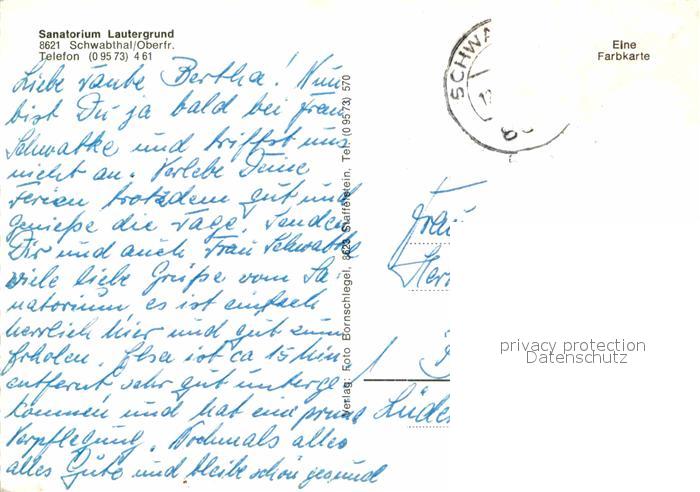 Sanatorium Lautergrund
8621 Schwabthal/Oberfr.
Telefon (0 95 73) 4 61
Eine
Farbkarte
SCHWA
Liebe Taube Bertha! Nun
bist Du ja bald bei Frau
Schwatke und triffst uns
nicht an. Verlebe Deine
Ferien trotzdem gut und
genieße die Tage. Senden
Dir und auch Frau Schwatke
viele liebe Grüße vom Sa-
natorium, es ist einfach
herrlich hier und gut zum
Erholen. Elsa ist ca 15 Min
entfernt sehr gut unterge-
kommen und hat eine prima
Verpflegung. Nochmals alles
alles Gute und bleibe schön gesund
Verlag: Foto Bornschlegel, 8623 Staffelstein, Tel. (0 95 73) 570
Frau
Lüde
privacy protection
Datenschutz